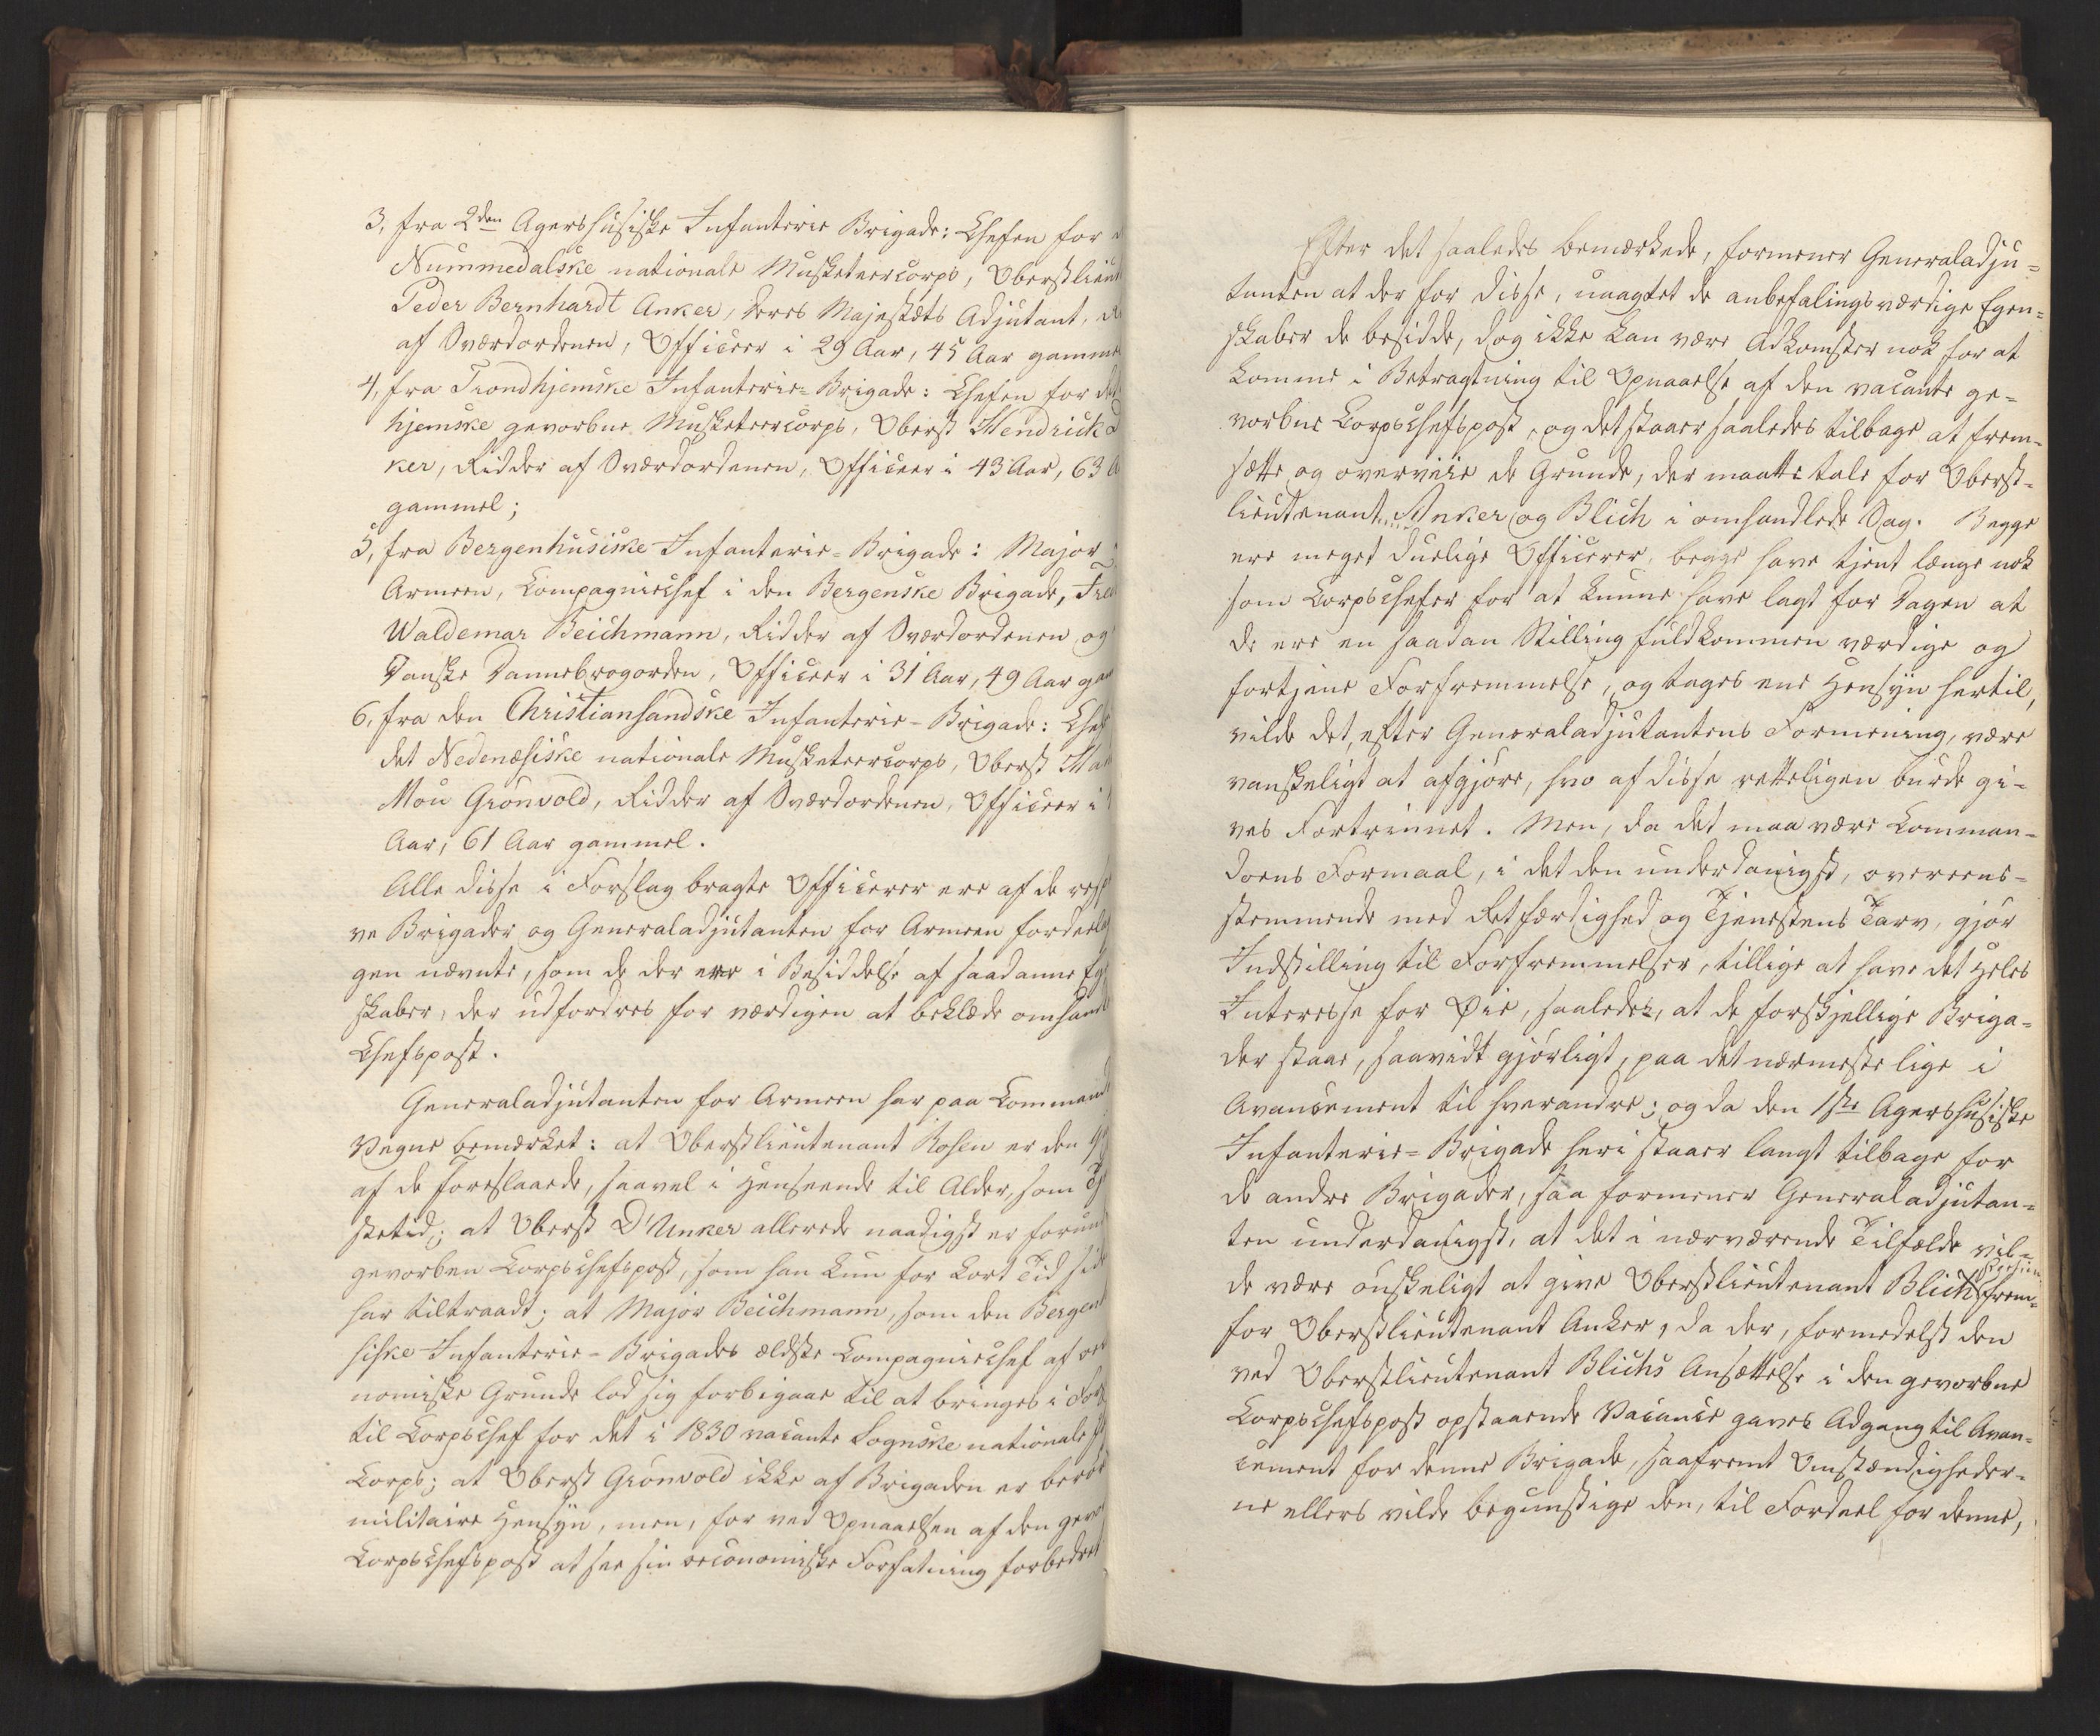 3, fra 2den Agershusiske Infanterie Brigade: Chefen for
Nummedalske nationale Musketeercorps, Oberstlieut
Peder Bernhardt Anker, Deres Majestæts Adjutant,
af Sværdordenen, Officeer i 29 Aar, 45 Aar gamme
4, fra Trondhjemske Infanterie-Brigade: Chefen for det
hjemske gevorbne Musketeercorps, Oberst Hendrick
ker, Ridder af Sværdordenen, Officeer i 43 Aar, 63
gammel;
5, fra Bergenhusiske Infanterie-Brigade: Major
Armeen, Compagniechef i den Bergenske Brigade,
Waldemar Beichmann, Ridder af Sværdordenen og
Danske Dannebrogorden, Officeer i 31 Aar, 49 Aar gam
6, fra den Christiansandske Infanterie-Brigade: Chef
det Nedenæsiske nationale Musketeercorps, Oberst
Mou Grönvold, Ridder af Sværdordenen, Officeer i
Aar, 61 Aar gammel.
Alle disse i Forslag bragte Officerer ere af de resp
ve Brigader og Generaladjutanten for Armeen fordeelag
gen nævnte, som de der ere i Besiddelse af saadanne Eg
skaber, der udfordres for værdigen at beklæde omhand
Chefspost.
Generaladjutanten for Armeen har paa Command
Vegne bemærket: at Oberstlieutenant Rosen er den
af de foreslaaede, saavel i Henseende til Alder, som Tje
stetid; at Oberst D'Unker allerede naadigst er forund
gevorben Corpschefspost, som han kun for kort Tid si
har tiltraadt; at Major Beichmann, som den Bergen
siske Infanterie-Brigades ældste Compagniechef af oec
nomiske Grunde lod sig forbigaae til at bringes i For
til Corpschef for det i 1830 vacante Sognske nationale
Corps; at Oberst Grönvold ikke af Brigaden er
militaire Hensyn, men, for ved Opnaaelsen af den gevor
Corpschefspost at see sin oeconomiske Forfatning forbedret
Efter det saaledes bemærkede, formener Generaladju-
tanten at der for disse, uagtet de anbefalingsværdige Egen-
skaber de besidde, dog ikke kan være Adkomster nok for at
komme i Betragtning til Opnaaelse af den vacante ge-
vorbne Corpschefspost, og det staaer saaledes tilbage at frem-
sætte og overveie de Grunde, der maatte tale for Oberst-
lieutenant Anker og Blich i omhandlede Sag. Begge
ere meget duelige Officerer, begge have tjent længe nok
som Corpschefer for at kunne have lagt for Dagen at
de ere en saadan Stilling fuldkommen værdige og
fortjene Forfremmelse, og tages ene Hensyn hertil,
vilde det, efter Generaladjutantens Formening, være
vanskeligt at afgjöre, hvo af disse retteligen burde gi-
ves Fortrinnet. Men, da det maa være Comman-
doens Formaal, i det den underdanigst, overeens-
stemmende med Retfærdighed og Tjenestens Tarv, gjör
Indstilling til Forfremmelser, tillige at have det Heles
Interesse for Øie, saaledes, at de forskjellige Briga-
der staae, saavidt gjörligt, paa det nærmeste lige i
Avancement til hverandre; og da den 1ste Agershusiske
Infanterie-Brigade heri staaer langt tilbage for
de andre Brigader, saa formener Generaladjutan-
ten underdanigst, at det i nærværende Tilfælde vil-
de være önskeligt at give Oberstlieutenant Blich frem-
for Oberstlieutenant Anker, da der, formedelst den
ved Oberstlieutenant Blichs Ansættelse i den gevorbne
Corpschefspost opstaaende Vacance gaves Adgang til Avan-
cement for denne Brigade, saafremt Omstændigheder-
ne ellers vilde begunstige den, til Fordeel for denne,